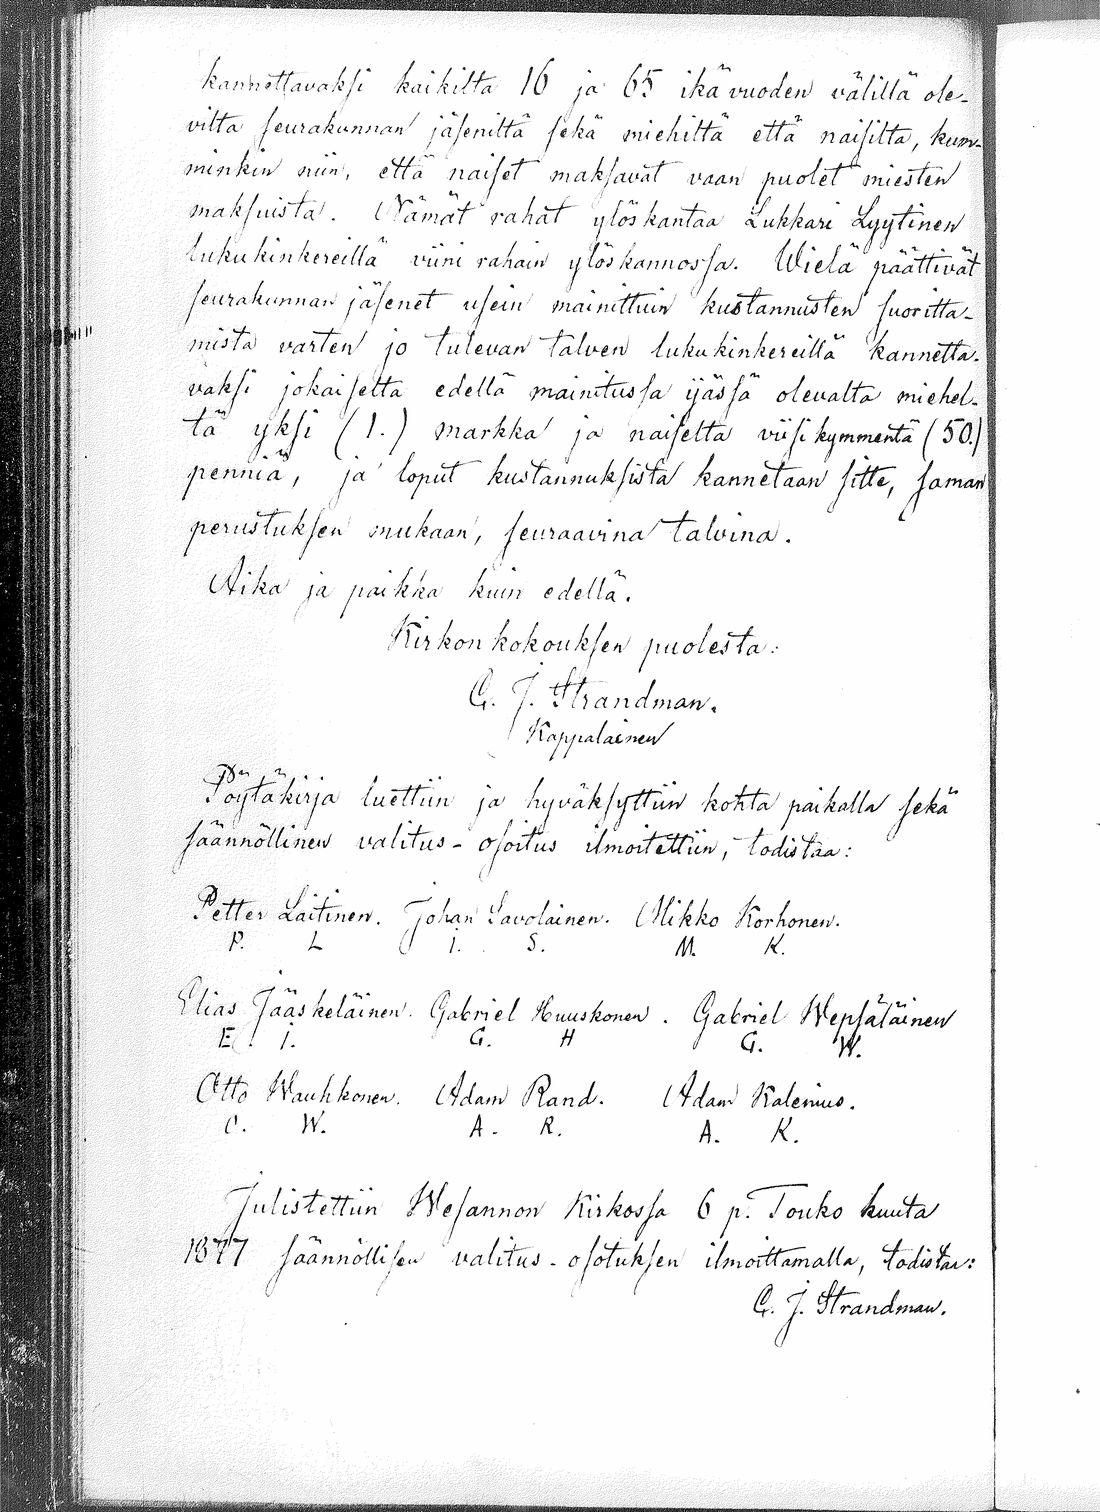 kannettavaksi kaikilta 16 ja 65 ikävuoden välillä ole-
vitta seurakunnan jäseniltä sekä miehiltä että naisilta, kum-
minkin niin, että naiset maksavat vaan puolet miesten
maksuista. Nämät rahat ylöskantaa Lukkari Lyytinen
lukukinkereillä viinirahain ylöskannossa. Wielä päättivät
seurakunnan jäsenet usein mainittuin kustannusten suoritta-
mista varten jo tulevan talven lukukinkereillä kannetta-
vaksi jokaiselta edellä mainitussa ijässä olevalta miehel-
tä yksi (1.) markka ja naiselta viisikymmentä (50.)
penniä, ja loput kustannuksista kannetaan sitte, saman
perustuksen mukaan, seuraavina talvina.
Aika ja paikka kuin edellä.
Kirkonkokouksen puolesta:
C. J. Strandman.
Kappalainen
Pöytäkirja luettiin ja hyväksyttiin kohta paikalla sekä
säännöllinen valitus-osoitus ilmoitettiin, todistaa:
Petter Laitinen. Johan Savolainen. Mikko Korhonen.
P. L I. S. M. K.
Elias Jääskeläinen. Gabriel Huuskonen. Gabriel Wepsäläinen
E. I. G. H G. W.
Otto Wauhkonen. Adam Rand. Adam Kalenius.
O. W. A. R. A. K.
Julistettiin Wesannon Kirkossa 6 p. Toukokuuta
1877 säännöllisen valitus-osotuksen ilmoittamalla, todistaa:
C. J. Strandman.